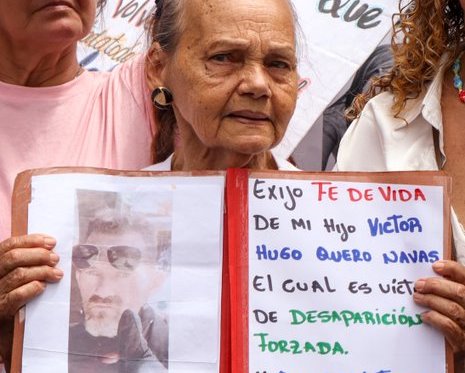 Volv
que
EXIJO FE DE VIDA
DE MI HIJO VICTOR
HUGO QUERO NAVAS
EL CUAL ES VÍCT
DE DESAPARICIÓN
FORZADA.